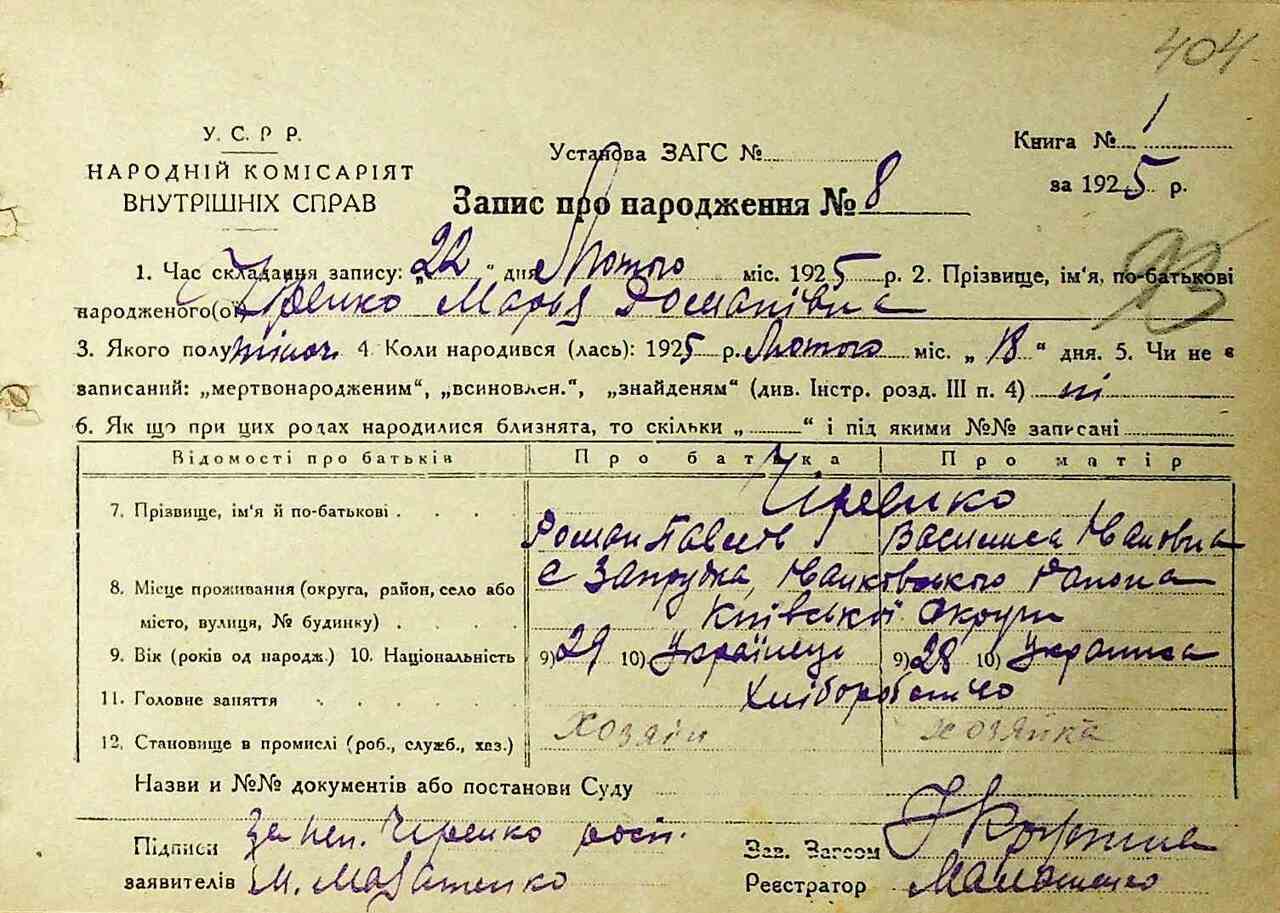 404
У. С. Р Р.
НАРОДНІЙ КОМІСАРІЯТ
ВНУТРІШНІХ СПРАВ
Установа ЗАГС №
Книга № 1
за 1925 р.
Запис про народження № 8
1. Час складання запису: „22“ дня Лютого міс. 1925 р. 2. Прізвище, ім'я, по-батькові
народженого(ої) Марья Романівна
3. Якого полу жіноч. 4. Коли народився (лась): 1925 р. Лютого міс. „18“ дня. 5. Чи не є
записаний: „мертвонародженим“, „всиновлен.“, „знайденям“ (див. Інстр. розд. III п. 4) ні
6. Як що при цих родах народилися близнята, то скільки „ “ і під якими №№ записані
Відомості про батьків Про батька Про матір
7. Прізвище, ім'я й по-батькові
Роман Василиса Івановна
8. Місце проживання (округа, район, село або
с Запрудка Району
місто, вулиця, № будинку)
Київської Округи
9. Вік (років од народж.) 10. Національність 9) 29 10) Українець 9) 28 10) Украинка
11. Головне заняття Хліборобство
12. Становище в промислі (роб., служб., хаз.) хозяін хозяйка
Назви и №№ документів або постанови Суду
Підписи
заявителів М.
Зав. Загсом
Реєстратор